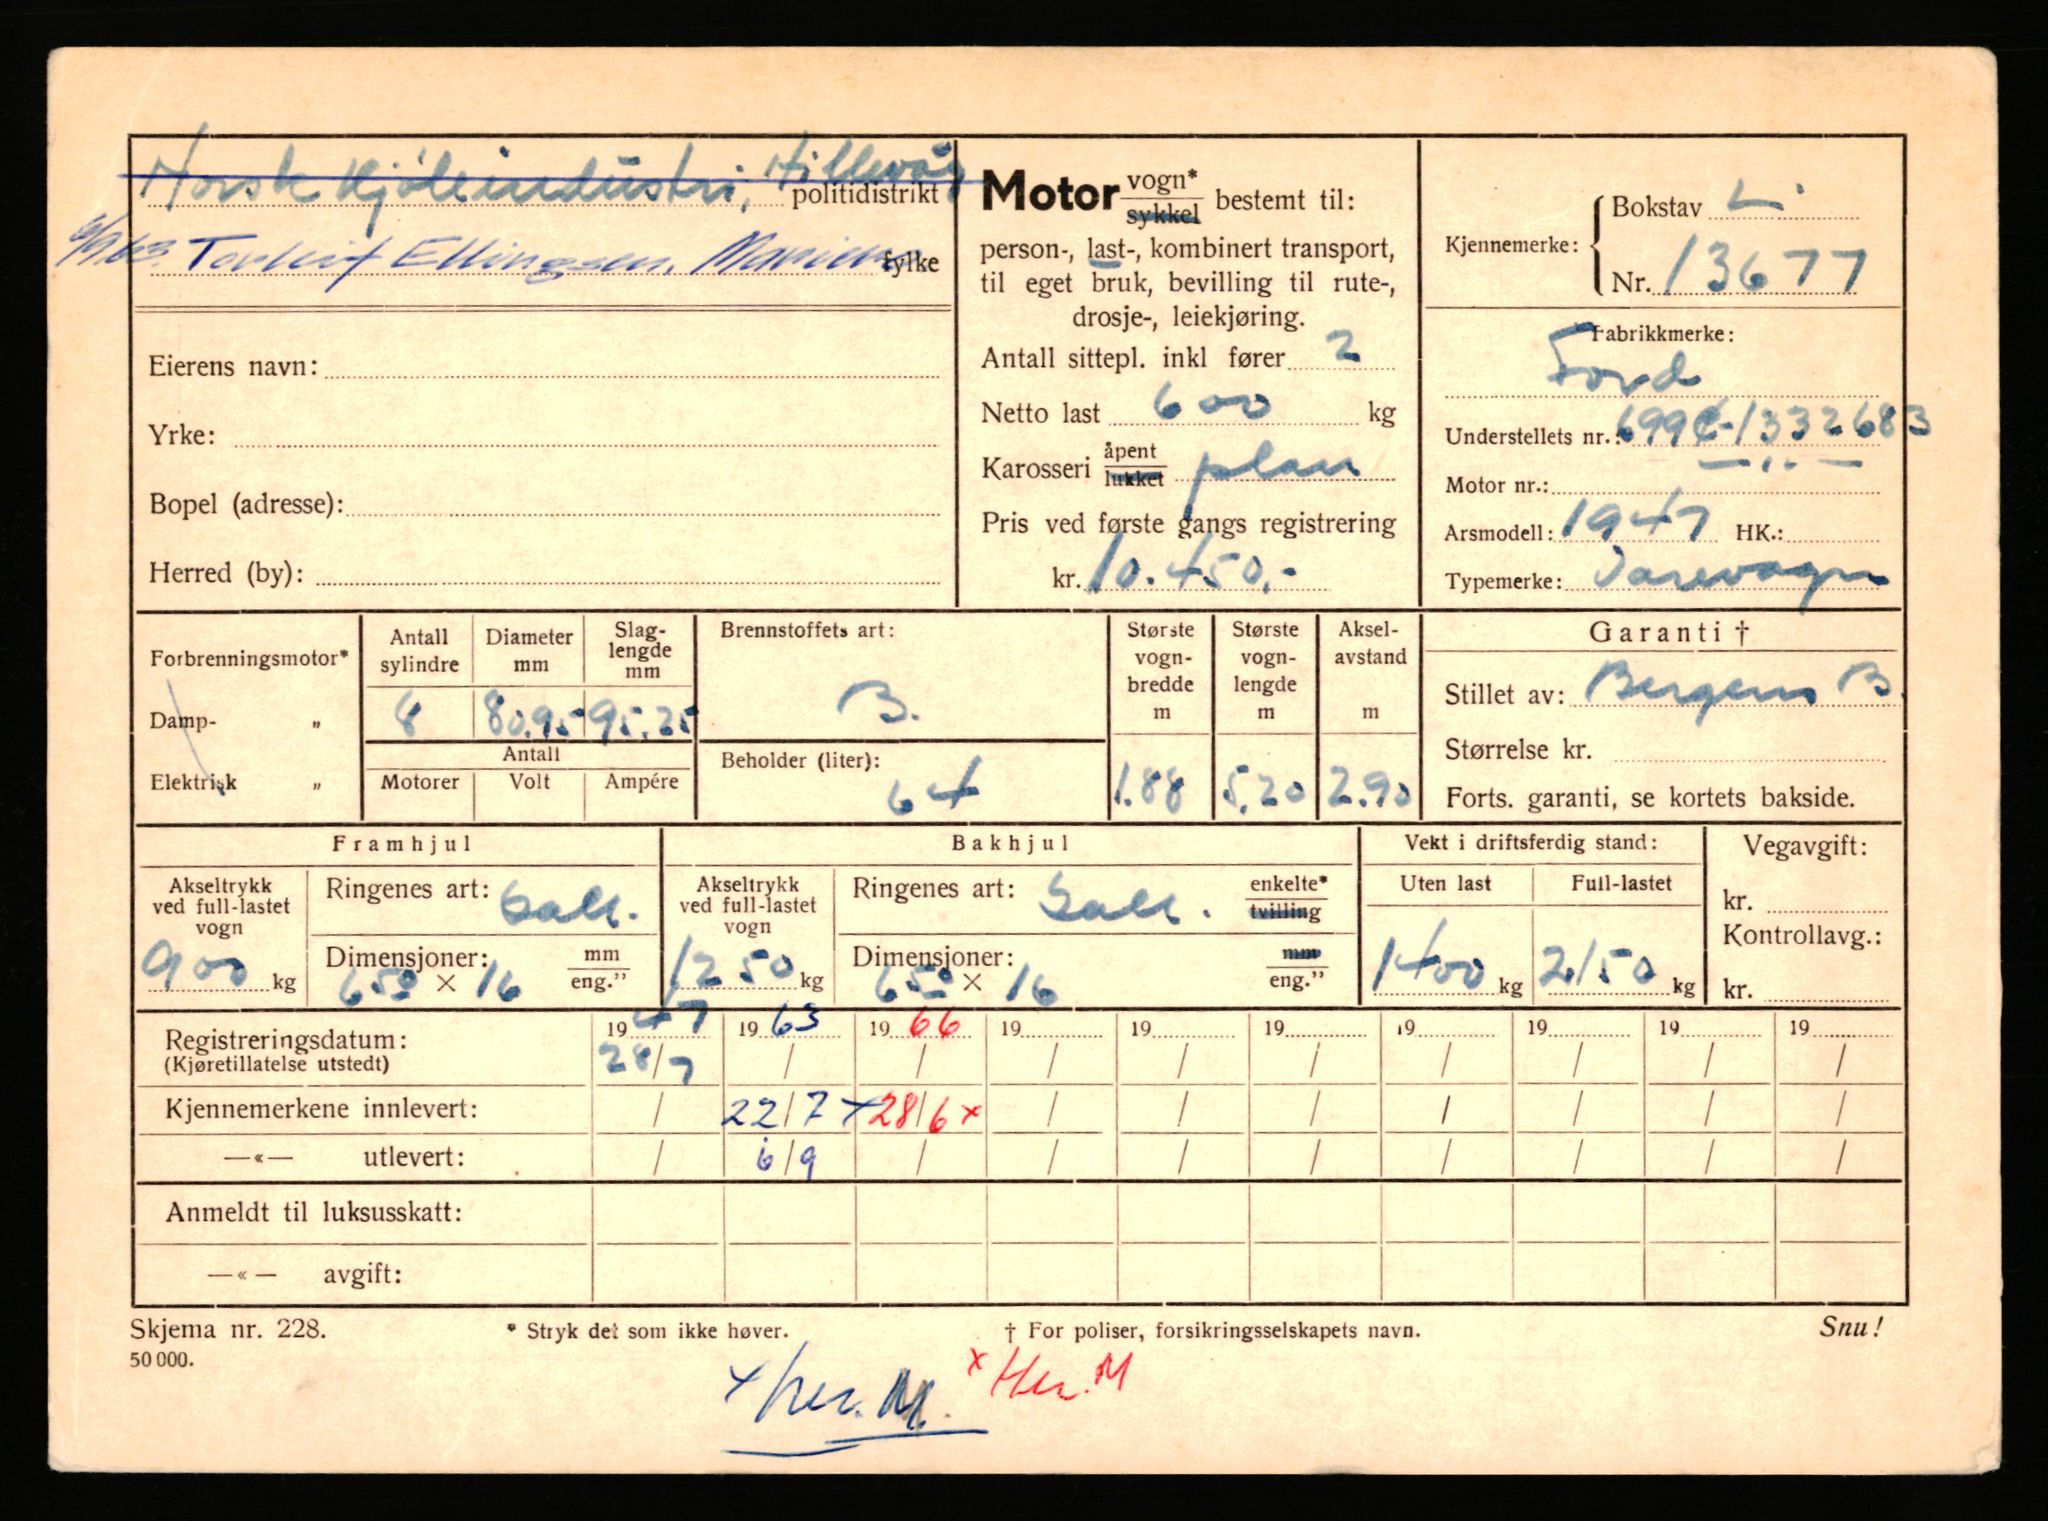 Norsk Kjøleindustri, Hillevåg
politidistrikt
6/9.63. Torleif Ellingsen,
fylke
Eierens navn:
Yrke:
Bopel (adresse):
Herred (by):
Motor vogn* sykkel bestemt til:
person-, last-, kombinert transport,
til eget bruk, bevilling til rute-,
drosje-, leiekjøring.
Antall sittepl. inkl fører 2
Netto last 600 kg
Karosseri åpent lukket plan
Pris ved første gangs registrering
kr. 10.450,-
Kjennemerke: Bokstav L
Nr. 13677
Fabrikkmerke:
Ford
Understellets nr.: 699C-1332683
Motor nr.: — ,, —
Arsmodell: 1947 HK.:
Typemerke: Varevogn
Forbrenningsmotor*
Damp- „
Elektrisk „
Antall sylindre 8
Diameter mm 80.95
Slag-
lengde
mm 95.25
Antall
Motorer Volt Ampére
Brennstoffets art:
B.
Beholder (liter):
64
Største
vogn-
bredde
m
1.88
Største
vogn-
lengde
m
5.20
Aksel-
avstand
m
2.90
Garanti †
Stillet av: Bergens B.
Størrelse kr.
Forts. garanti, se kortets bakside.
Framhjul
Akseltrykk
ved full-lastet
vogn
900 kg
Ringenes art: Ball.
Dimensjoner: mm
650 × 16 eng."
Bakhjul
Akseltrykk
ved full-lastet
vogn
1250 kg
Ringenes art: Ball. enkelte* tvilling
Dimensjoner: mm
650 × 16 eng."
Vekt i driftsferdig stand:
Uten last Full-lastet
1400 kg 2150 kg
Vegavgift:
kr.
Kontrollavg.:
kr.
Registreringsdatum: 1947 1963 1966 19 19 19 19 19 19 19
(Kjøretillatelse utstedt) 28/7 / / / / / / / / /
Kjennemerkene innlevert: / 22/7 x 28/6 x / / / / / / /
—«— utlevert: / 6/9 / / / / / / / /
Anmeldt til luksusskatt:
—«— avgift:
Skjema nr. 228. * Stryk det som ikke høver. † For poliser, forsikringsselskapets navn. Snu!
50 000.
x her. M. x Her. M